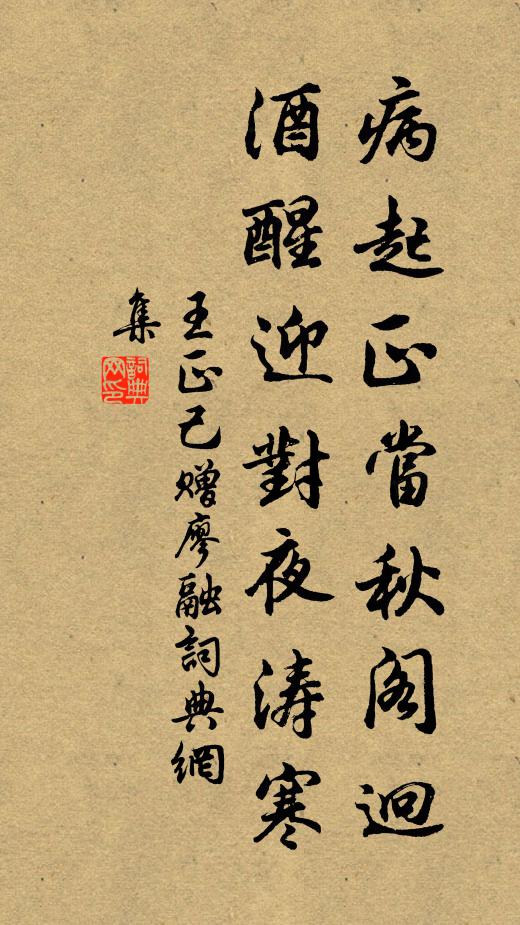 病起正當秋阁迥
酒醒迎對夜涛寒
王正己赠廖融詞典網
集
詞典网印